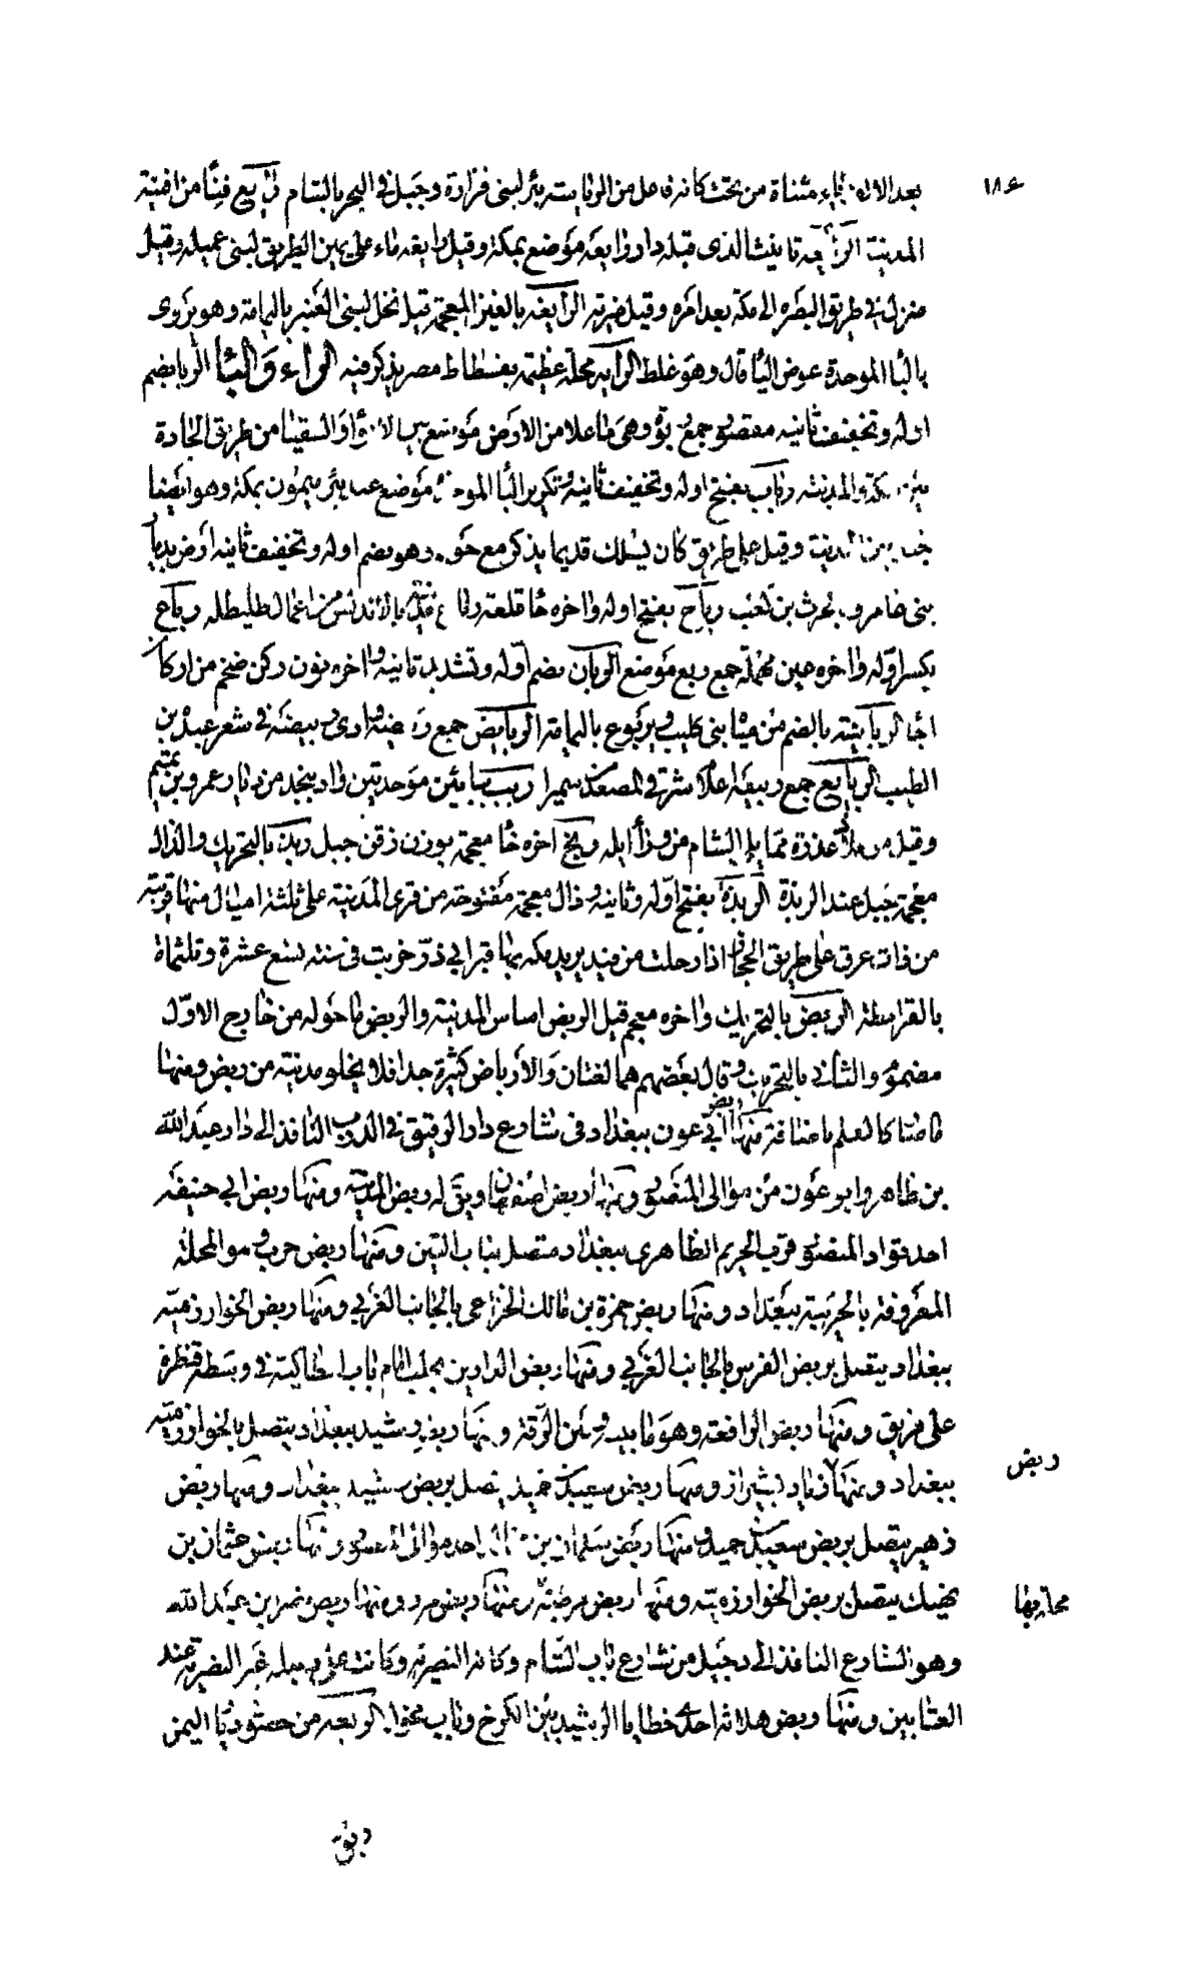 بعد الالف ياء مثناة من تحت كانه فاعل من الريا بئر لبنى فزارة وجبل فى البحر بالشام رايع فناء من افنية
المدينة الرايعة تانيث الذى قبله دار رايعة موضع بمكة وقيل رايغة ماء على يمين الطريق لبنى عميلة وقيل
منزل فى طريق البصرة الى مكة بعد امرة وقيل ضرية الرايغة بالغين المعجمة قيل نخل لبنى العنبر باليمامة وهو يروى
بالبا الموحدة عوض اليا قال وهو غلط الراية محلة عظيمة بفسطاط مصر يذكر فيه الراء والبا الربا بضم
اوله وتخفيف ثانيه مقصور جمع ربوة وهى ما علا من الارض موضع بين الابوا والسقيا من طريق الجادة
بين مكة والمدينة رباب بفتح اوله وتخفيف ثانيه وتكرير البا الموحدة موضع عند بئر ميمون بمكة وهو ايضا
جبل بين المدينة وقيل على طريق كان يسلك قديما يذكر مع وهو بضم اوله وتخفيف ثانيه ارض بديار
بنى عامر بن كعب رباح بفتح اوله واخره حا قلعة رباح بالاندلس من اعمال طليطلة رباع
بكسر اوله واخره عين مهملة جمع ربع موضع الربان بضم اوله وتشديد ثانيه واخره نون ركن ضخم من اركان
اجا الربايبة بالضم من مياه بنى كليب بن يربوع باليمامة الربايض جمع ربيضة وادى ربيضة فى شعر عبدة بن
الطبيب الربايع جمع ربيعة اعلا شرقى المصعد سميرا ربب ببائين موحدتين واد بنجد من ديار عمرو بن تميم
وقيل من بلاد عذرة مما يلى الشام من وراء ايلة ربخ اخره خا معجمة بوزن زفر جبل ربذ بالتحريك والذال
معجمة جبل عند الربذة الربذة بفتح اوله وثانيه وذال معجمة مفتوحة من قرى المدينة على ثلثة اميال منها قريبة
من ذات عرق على طريق الحجاز اذا رحلت من فيد يريد مكة بها قبر ابى ذر خربت فى سنة تسع عشرة وثلثماة
بالقرامطة الربض بالتحريك واخره معجم قيل الربض اساس المدينة والربض ما حوله من خارج الاول
مضموم والثانى بالتحريك وقال بعضهم هما لغتان والارباض كثيرة جدا فلا يخلو مدينة من ربض ومنها
ما صار كالعلم باضافة منها ربض ابى عون ببغداد فى شارع دار الرقيق فى الدرب النافذ الى دار عبد الله
بن طاهر وابو عون من موالى المنصور ومنها ربض اصفهان ويقال له ربض المدينة ومنها ربض ابى حنيفة
احد قواد المنصور قرب الحريم الطاهرى ببغداد متصل بباب التين ومنها ربض حرب وهو المحلة
المعروفة بالحربية ببغداد ومنها ربض حمزة بن مالك الخزاعى بالجانب الغربى ومنها ربض الخوارزمية
ببغداد يتصل بربض الفرس بالجانب الغربى ومنها ربض الدارين بحلب امام باب انطاكية فى وسطه قنطرة
على قويق ومنها ربض الرافقة وهو ما بينه وبين الرقة ومنها ربض رشيد ببغداد يتصل بالخوارزمية
ببغداد ومنها زياد بشيراز ومنها ربض سعيد بن حميد يتصل بربض رشيد ببغداد ومنها ربض
زهير يتصل بربض سعيد بن حميد ومنها ربض سليمان بن احد موالى المنصور ومنها ربض عثمان بن
نهيك يتصل بربض الخوارزمية ومنها ربض ومنها ربض ومنها ربض نصر بن عبد الله
وهو الشارع النافذ الى دجيل من شارع باب الشام وكانه النصرية وكانت على سبيله غير النصرية عند
العتابين ومنها ربض هلانة احدى خطايا الرشيد بين الكرخ وباب محول الربعة من حصون ذمار اليمن
١٨٤
ربض
محاربها
ربق